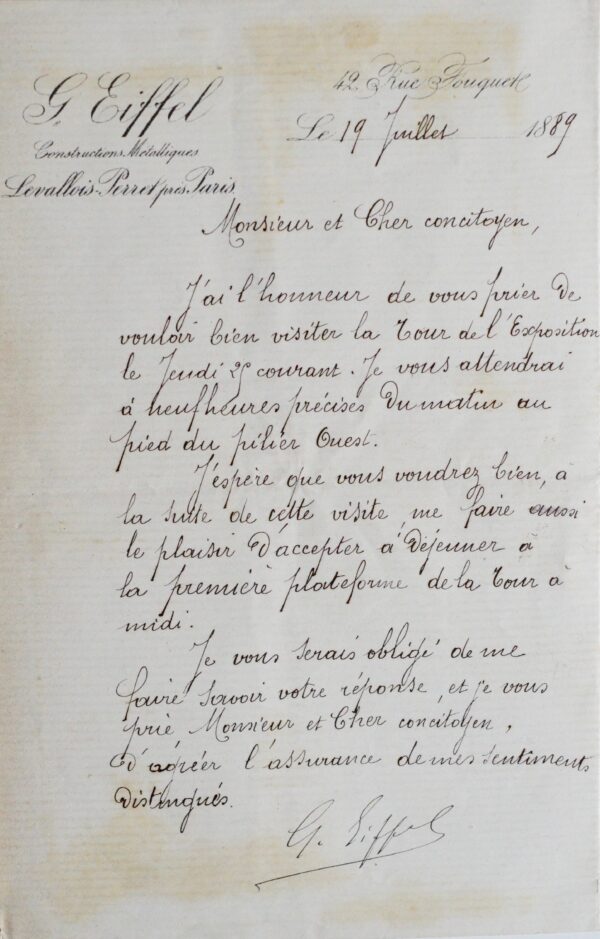 G. Eiffel
Constructions Métalliques
Levallois-Perret près Paris
42 Rue Fouquet
Le 19 Juillet 1889
Monsieur et Cher concitoyen,
J'ai l'honneur de vous prier de
vouloir bien visiter la Tour de l'Exposition
le Jeudi 25 courant. Je vous attendrai
à neuf heures précises du matin au
pied du pilier Ouest.
J'espère que vous voudrez bien, à
la suite de cette visite, me faire aussi
le plaisir d'accepter à déjeuner à
la première plateforme de la Tour à
midi.
Je vous serais obligé de me
faire savoir votre réponse, et je vous
prie Monsieur et Cher concitoyen,
d'agréer l'assurance de mes sentiments
distingués.
G. Eiffel